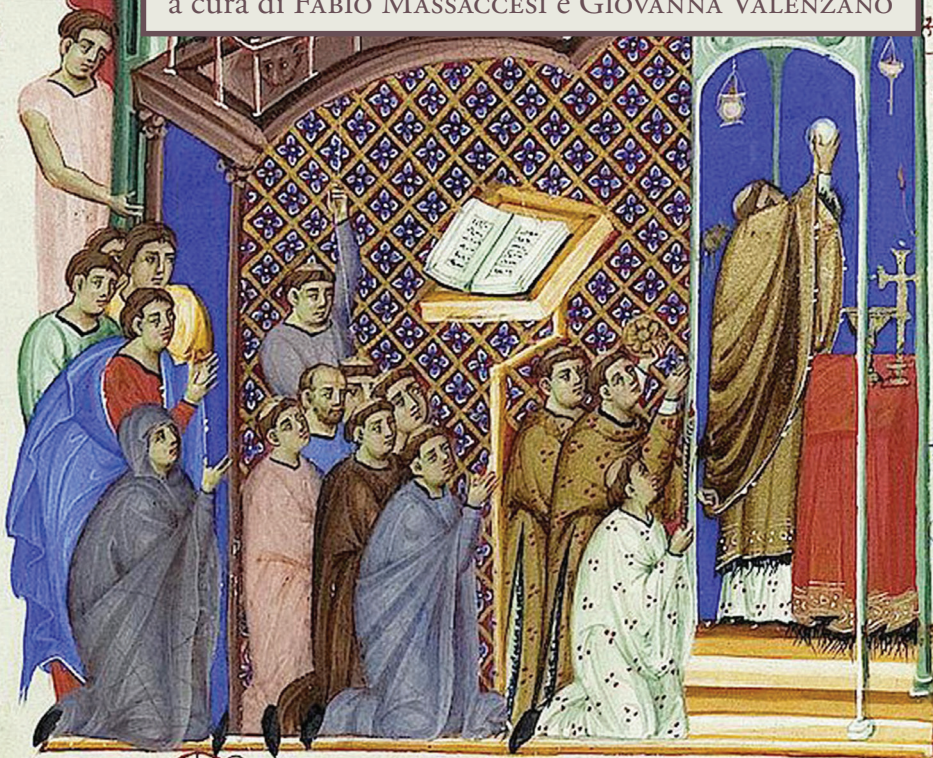 a cura di FABIO MASSACCESI e GIOVANNA VALENZANO